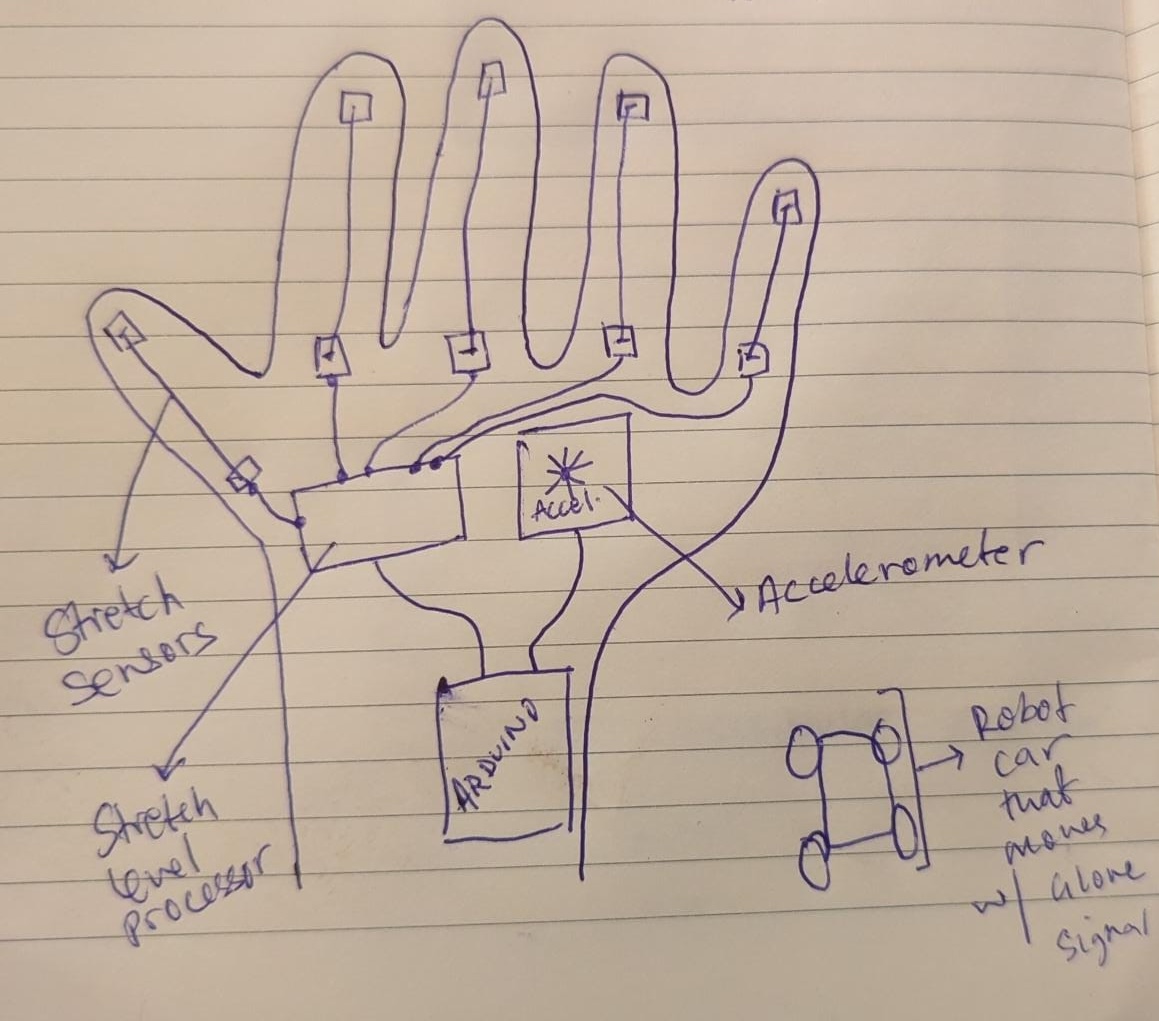 Accel.
Accelerometer
Stretch
sensors
ARDUINO
Stretch
level
processor
Robot
car
that
moves
w/ Glove
signal